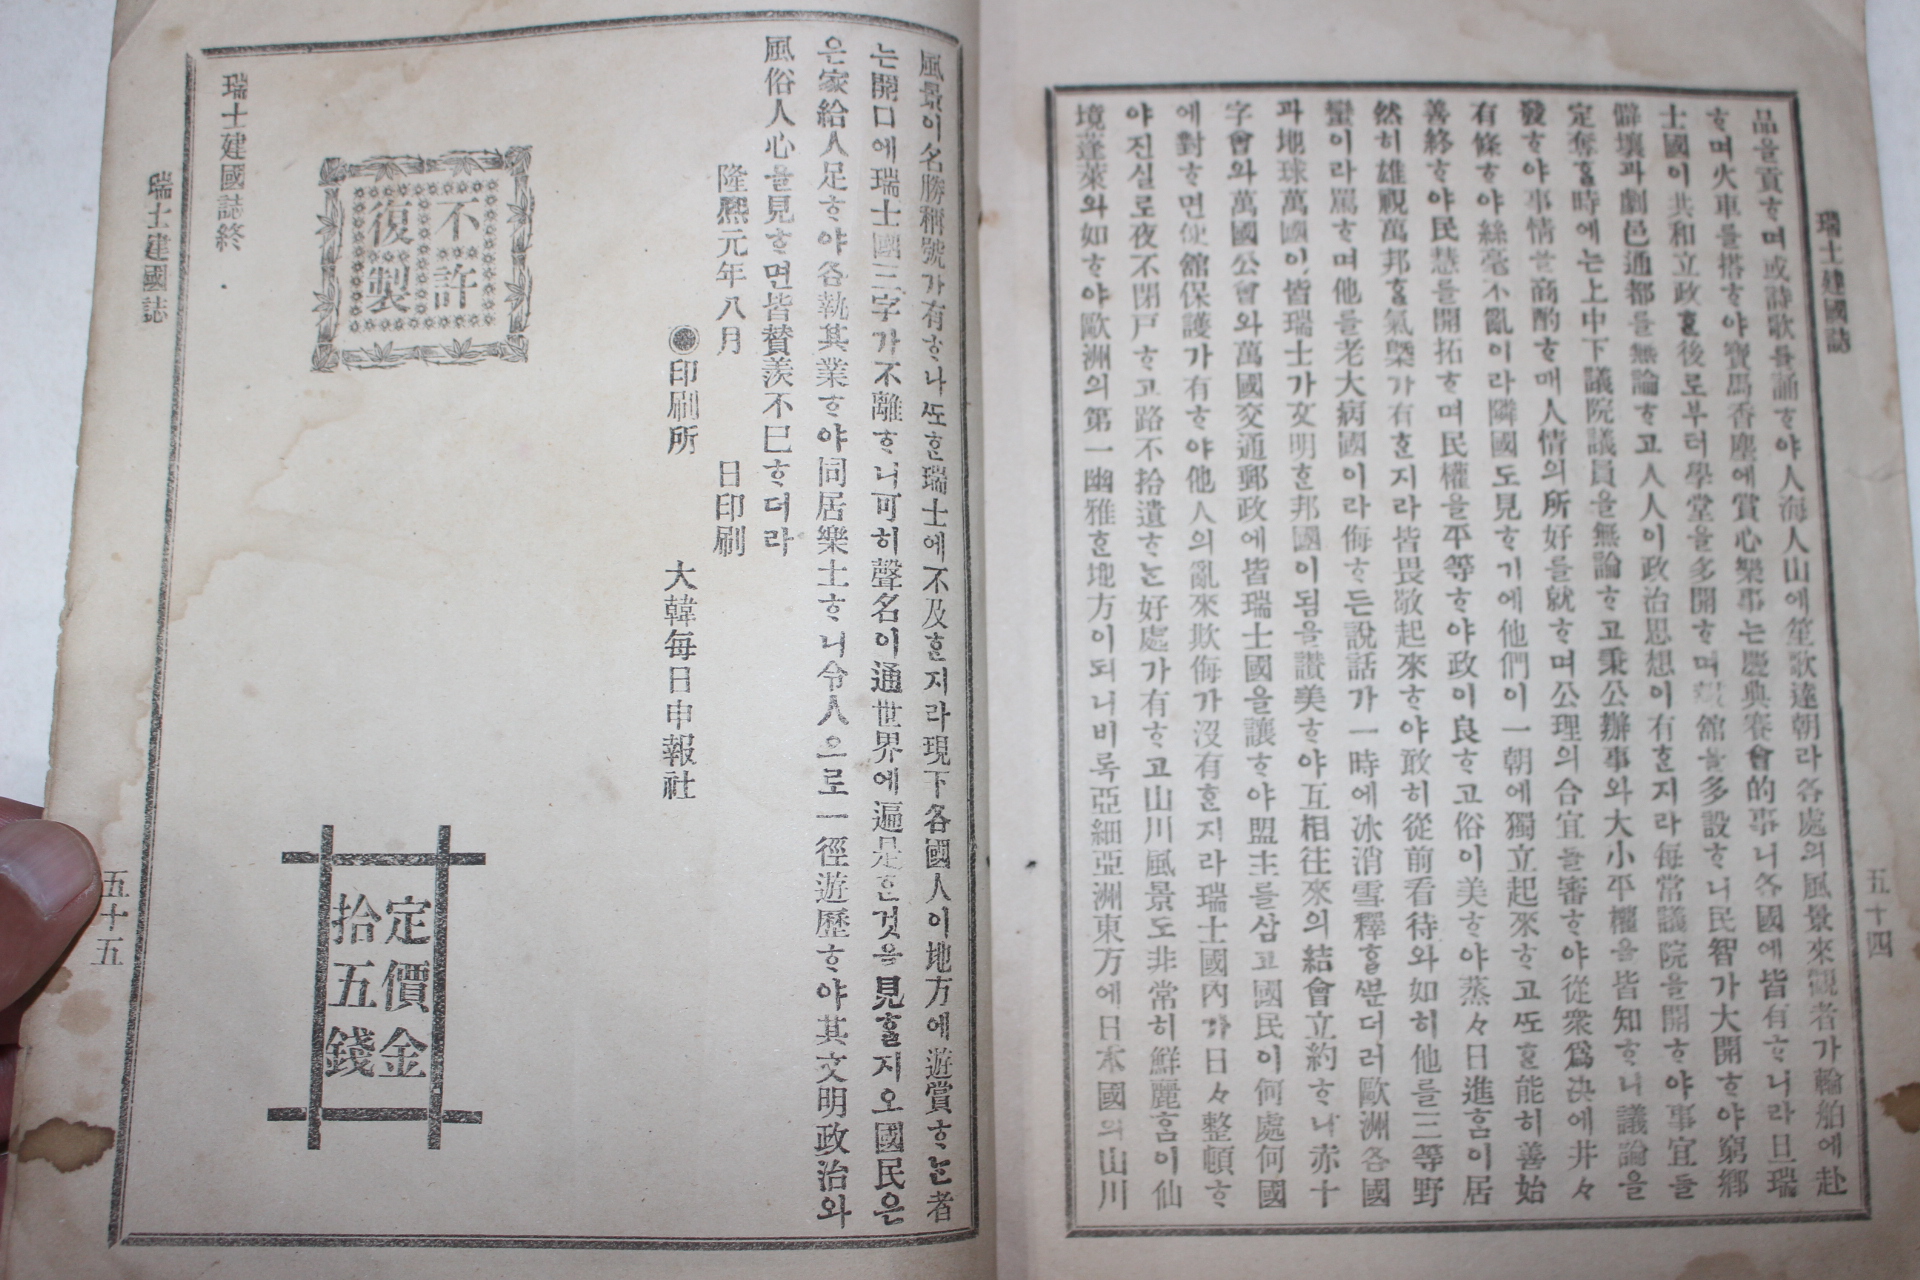 瑞士建國誌
五十四
品을貢ᄒᆞ며或詩歌를誦ᄒᆞ야人海人山에笙歌達朝라各處의風景來觀者가輪舶에赴
ᄒᆞ며火車를搭ᄒᆞ야寶馬香塵에賞心樂事는慶典賽會的事니各國에皆有ᄒᆞ니라旦瑞
士國이共和立政ᄒᆞᆫ後로부터學堂을多開ᄒᆞ며 舘을多設ᄒᆞ니民智가大開ᄒᆞ야窮鄉
僻壤과劇邑通都를無論ᄒᆞ고人人이政治思想이有ᄒᆞᆫ지라每常議院을開ᄒᆞ야事宜를
定奪ᄒᆞᆯ時에는上中下議院議員을無論ᄒᆞ고秉公辦事와大小平權을皆知ᄒᆞ니議論을
發ᄒᆞ야事情을商酌ᄒᆞ매人情의所好를就ᄒᆞ며公理의合宜를審ᄒᆞ야從衆爲决에井々
有條ᄒᆞ야絲毫不亂이라隣國도見ᄒᆞ기에他們이一朝에獨立起來ᄒᆞ고ᄯᅩᄒᆞᆫ能히善始
善終ᄒᆞ야民慧를開拓ᄒᆞ며民權을平等ᄒᆞ야政이良ᄒᆞ고俗이美ᄒᆞ야蒸々日進ᄒᆞᆷ이居
然히雄視萬邦ᄒᆞᆯ氣槩가有ᄒᆞᆫ지라皆畏敬起來ᄒᆞ야敢히從前看待와如히他를三等野
蠻이라罵ᄒᆞ며他를老大病國이라侮ᄒᆞ든說話가一時에冰消雪釋ᄒᆞᆯᄲᅮᆫ더러歐洲各國
과地球萬國이皆瑞士가文明ᄒᆞᆫ邦國이됨을讚美ᄒᆞ야互相往來의結會立約ᄒᆞ니赤十
字會와萬國公會와萬國交通郵政에皆瑞士國을讓ᄒᆞ야盟主를삼고國民이何處何國
에對ᄒᆞ면使舘保護가有ᄒᆞ야他人의亂來欺侮가沒有ᄒᆞᆫ지라瑞士國內가日々整頓ᄒᆞ
야진실로夜不閉戶ᄒᆞ고路不拾遺ᄒᆞᄂᆞᆫ好處가有ᄒᆞ고山川風景도非常히鮮麗ᄒᆞᆷ이仙
境蓬萊와如ᄒᆞ야歐洲의第一幽雅ᄒᆞᆫ地方이되니비록亞細亞洲東方에日本國의山川
風景이名勝稱號가有ᄒᆞ나ᄯᅩᄒᆞᆫ瑞士에不及ᄒᆞᆫ지라現下各國人이地方에遊賞ᄒᆞᄂᆞᆫ者
는開口에瑞士國三字가不離ᄒᆞ니可히聲名이通世界에遍是ᄒᆞᆫ것을見ᄒᆞᆯ지오國民은
은家給人足ᄒᆞ야各執其業ᄒᆞ야同居樂土ᄒᆞ니令人으로一徑遊歷ᄒᆞ야其文明政治와
風俗人心을見ᄒᆞ면皆賛羨不已ᄒᆞ더라
隆熈元年八月 日印刷
印刷所 大韓每日申報社
不許
復製
定價金
拾五錢
瑞士建國誌終
瑞士建國誌
五十五